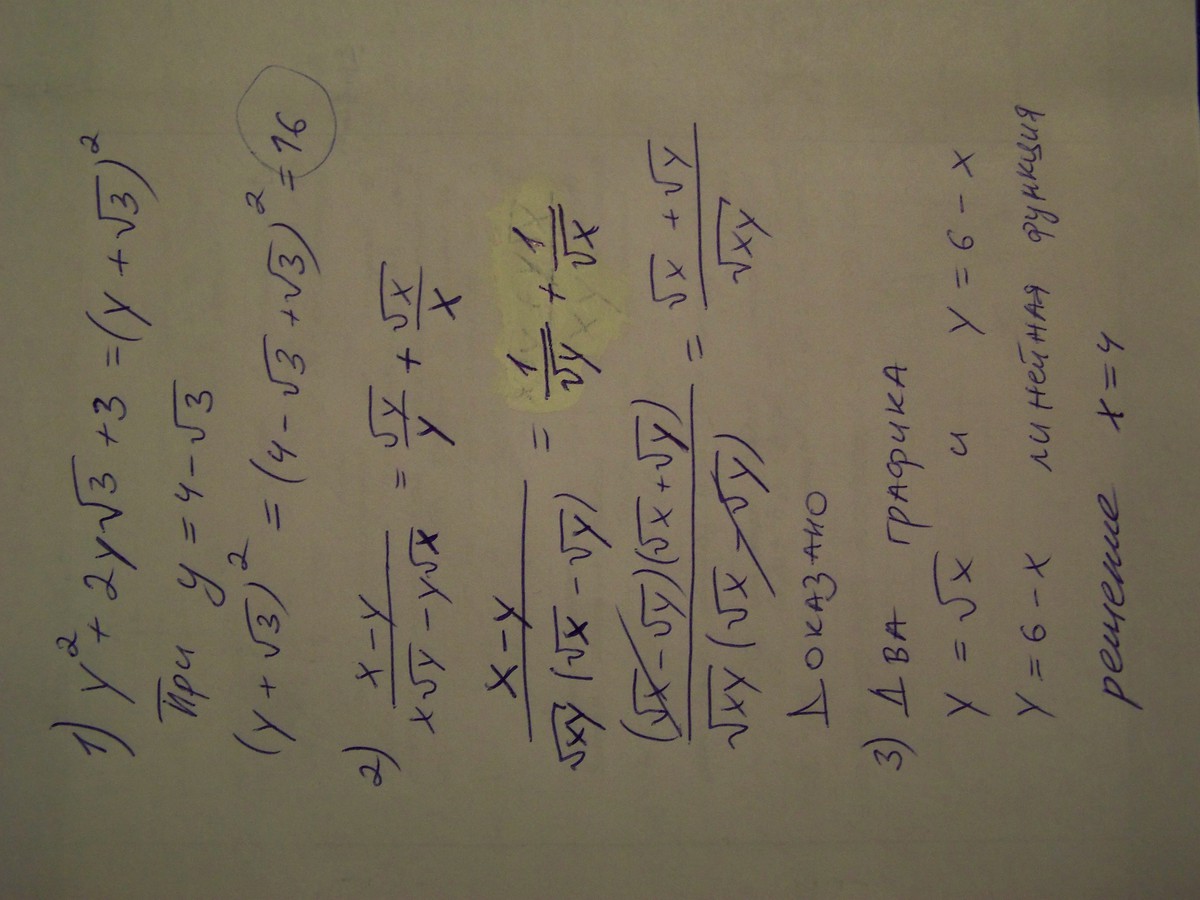 1) y² + 2y√3 + 3 = (y + √3)²
При y = 4 - √3
(y + √3)² = (4 - √3 + √3)² = 16
2) (x - y)/(x√y - y√x) = √y/y + √x/x
(x - y)/(√xy (√x - √y)) = 1/√y + 1/√x
((√x - √y)(√x + √y))/(√xy (√x - √y)) = (√x + √y)/√xy
Доказано
3) Два графика
y = √x и y = 6 - x
y = 6 - x линейная функция
решение x = 4